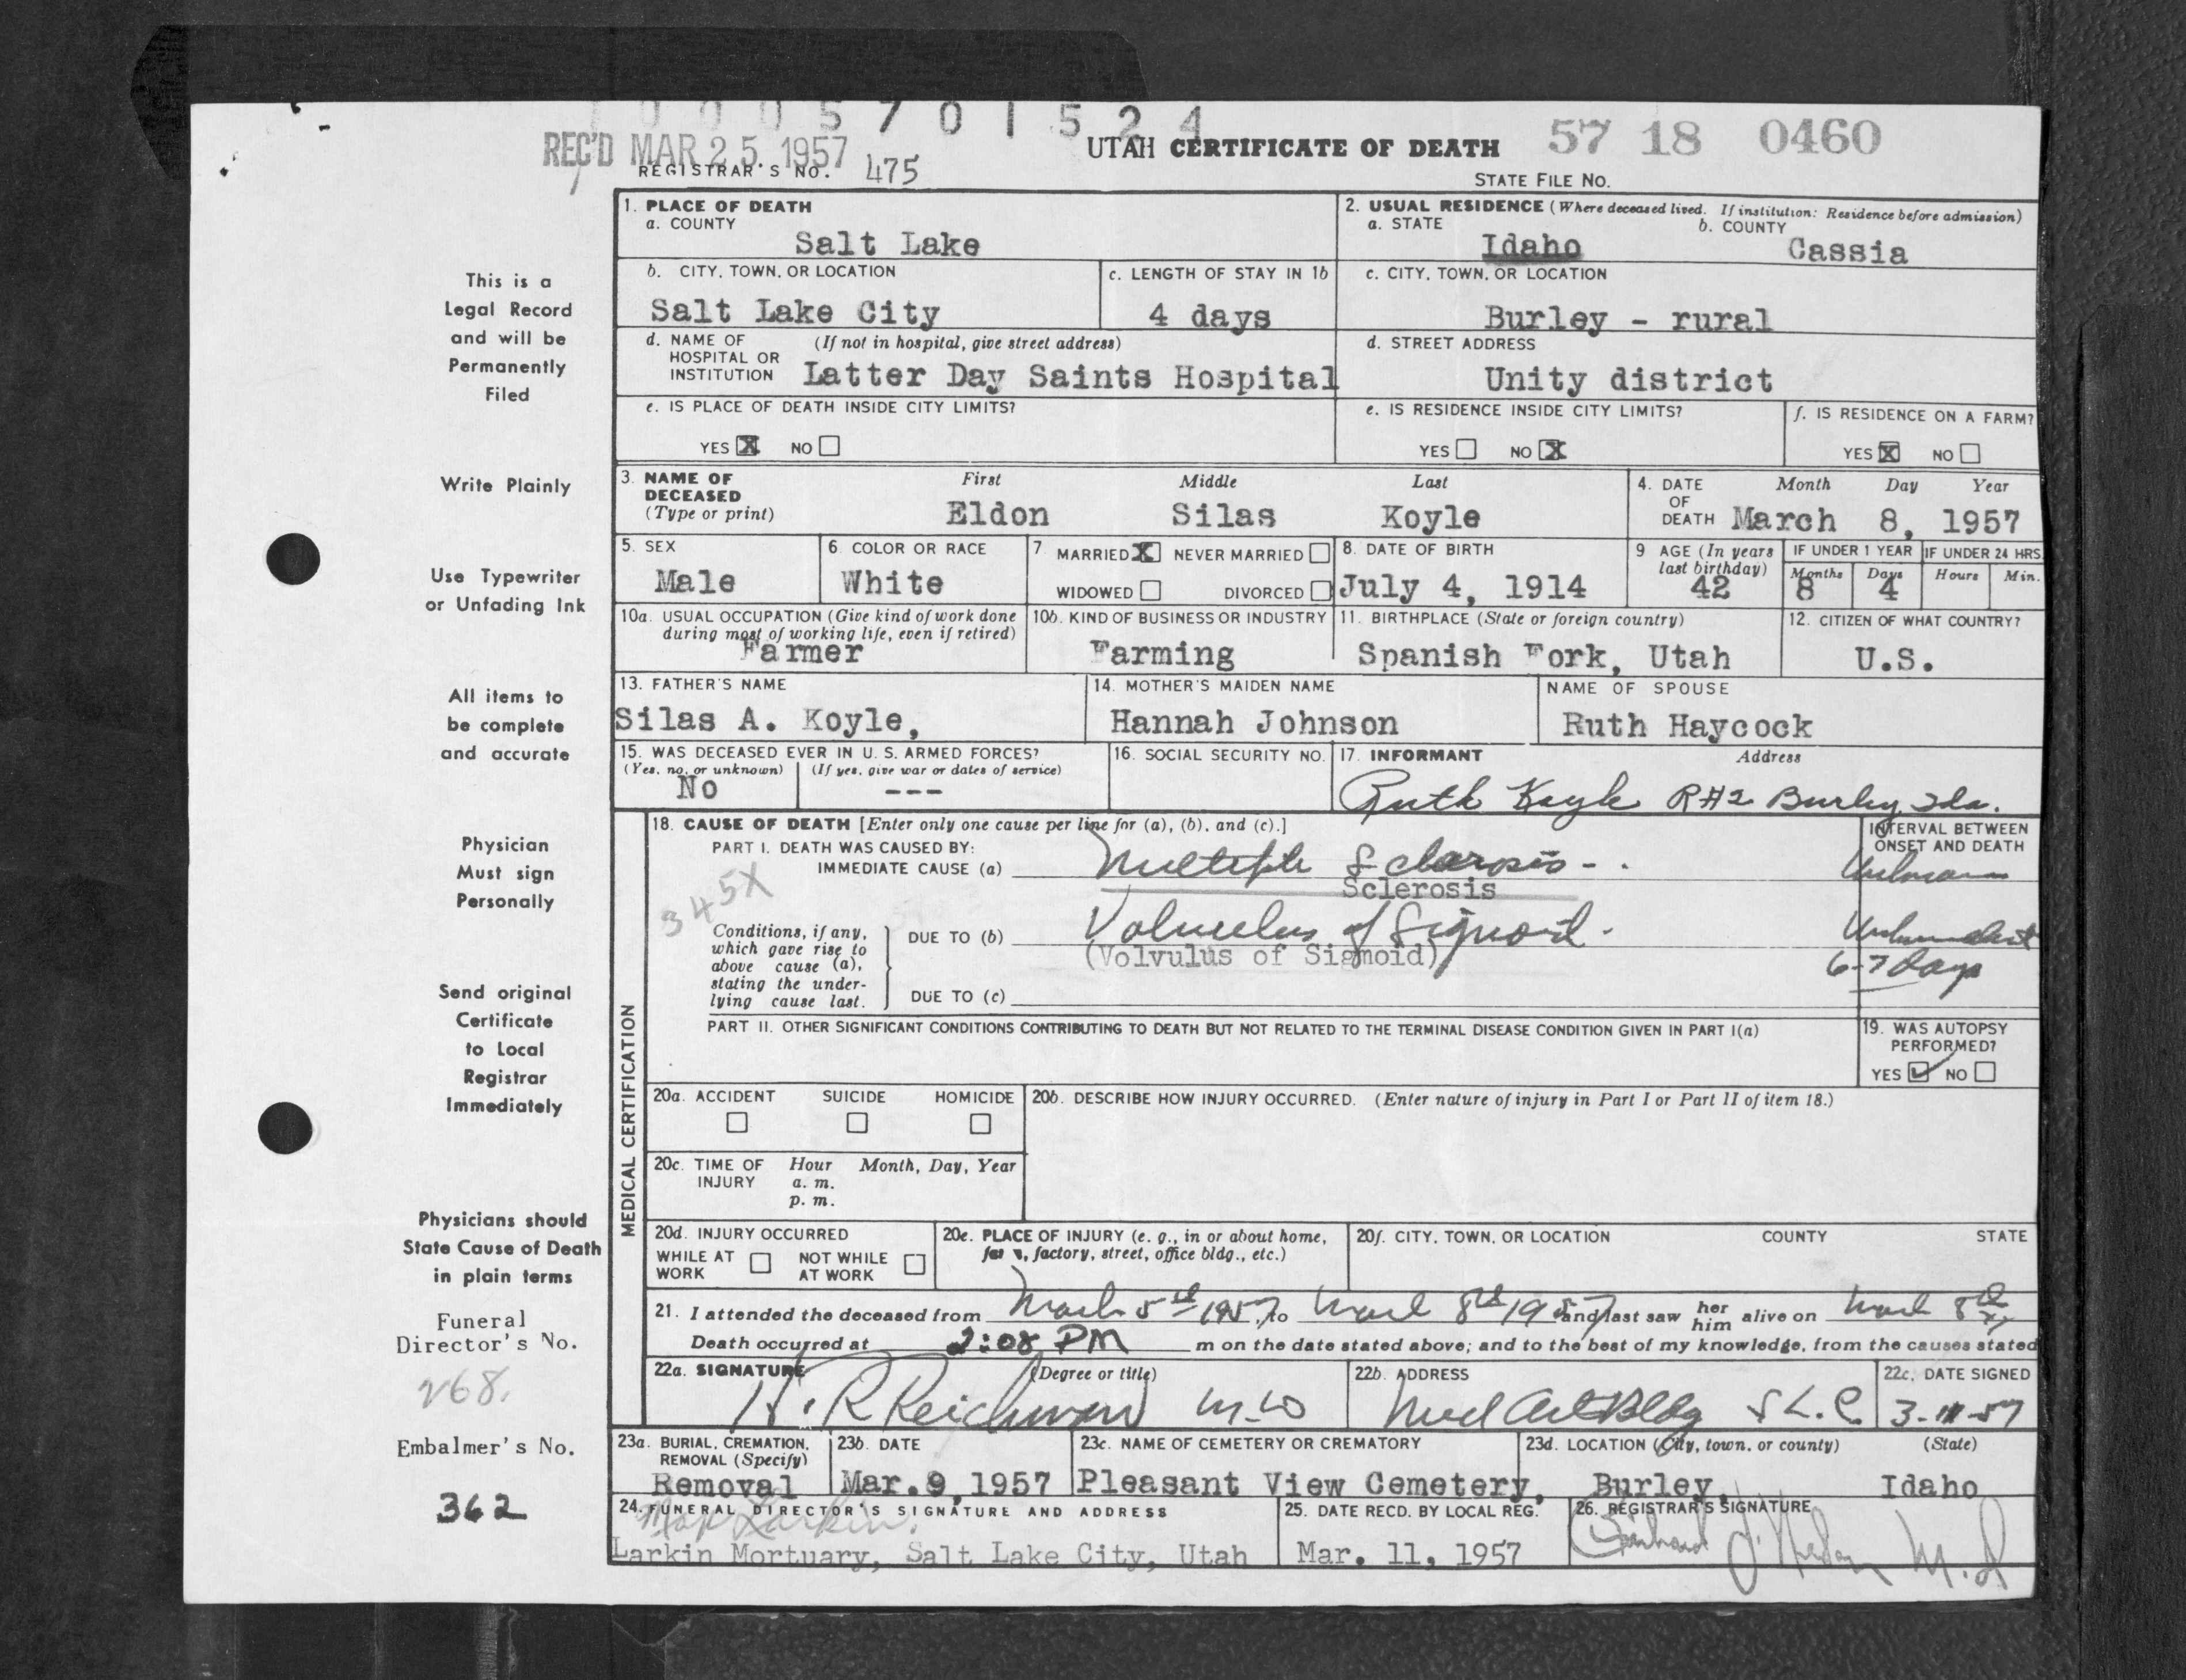 0005701524
REC'D MAR 25 1957
UTAH CERTIFICATE OF DEATH 57 18 0460
REGISTRAR'S NO. 475
STATE FILE NO.
This is a
Legal Record
and will be
Permanently
Filed
Write Plainly
Use Typewriter
or Unfading Ink
All items to
be complete
and accurate
Physician
Must sign
Personally
Send original
Certificate
to Local
Registrar
Immediately
Physicians should
State Cause of Death
in plain terms
Funeral
Director's No.
268.
Embalmer's No.
362
1. PLACE OF DEATH
a. COUNTY
Salt Lake
2. USUAL RESIDENCE (Where deceased lived. If institution: Residence before admission)
a. STATE b. COUNTY
Idaho Cassia
b. CITY, TOWN, OR LOCATION
Salt Lake City
c. LENGTH OF STAY IN 1b
4 days
c. CITY, TOWN, OR LOCATION
Burley - rural
d. NAME OF (If not in hospital, give street address)
HOSPITAL OR
INSTITUTION Latter Day Saints Hospital
d. STREET ADDRESS
Unity district
e. IS PLACE OF DEATH INSIDE CITY LIMITS?
YES X NO
e. IS RESIDENCE INSIDE CITY LIMITS?
YES NO X
f. IS RESIDENCE ON A FARM?
YES X NO
3. NAME OF First Middle Last
DECEASED
(Type or print) Eldon Silas Koyle
4. DATE Month Day Year
OF
DEATH March 8, 1957
5. SEX
Male
6. COLOR OR RACE
White
7. MARRIED X NEVER MARRIED
WIDOWED DIVORCED
8. DATE OF BIRTH
July 4, 1914
9 AGE (In years
last birthday)
42
IF UNDER 1 YEAR IF UNDER 24 HRS.
Months Days Hours Min.
8 4
10a. USUAL OCCUPATION (Give kind of work done
during most of working life, even if retired)
Farmer
10b. KIND OF BUSINESS OR INDUSTRY
Farming
11. BIRTHPLACE (State or foreign country)
Spanish Fork, Utah
12. CITIZEN OF WHAT COUNTRY?
U.S.
13. FATHER'S NAME
Silas A. Koyle,
14. MOTHER'S MAIDEN NAME
Hannah Johnson
NAME OF SPOUSE
Ruth Haycock
15. WAS DECEASED EVER IN U. S. ARMED FORCES?
(Yes, no, or unknown) (If yes, give war or dates of service)
No ---
16. SOCIAL SECURITY NO.
17. INFORMANT Address
Ruth Koyle R#2 Burley, Ida.
MEDICAL CERTIFICATION
18. CAUSE OF DEATH [Enter only one cause per line for (a), (b), and (c).]
INTERVAL BETWEEN
ONSET AND DEATH
PART I. DEATH WAS CAUSED BY:
IMMEDIATE CAUSE (a) Multiple Sclerosis - . Unknown
Sclerosis
345X
Conditions, if any,
which gave rise to
above cause (a),
stating the under-
lying cause last.
DUE TO (b) Volvulus of Sigmoid.
(Volvulus of Sigmoid)
6-7 days
DUE TO (c)
PART II. OTHER SIGNIFICANT CONDITIONS CONTRIBUTING TO DEATH BUT NOT RELATED TO THE TERMINAL DISEASE CONDITION GIVEN IN PART I(a)
19. WAS AUTOPSY
PERFORMED?
YES ✓ NO
20a. ACCIDENT SUICIDE HOMICIDE
20b. DESCRIBE HOW INJURY OCCURRED. (Enter nature of injury in Part I or Part II of item 18.)
20c. TIME OF Hour Month, Day, Year
INJURY a. m.
p. m.
20d. INJURY OCCURRED
WHILE AT WORK NOT WHILE AT WORK
20e. PLACE OF INJURY (e. g., in or about home,
farm, factory, street, office bldg., etc.)
20f. CITY, TOWN, OR LOCATION COUNTY STATE
21. I attended the deceased from March 5th 1957, to March 8th 1957 and last saw her him alive on March 8th
Death occurred at 2:08 PM m on the date stated above; and to the best of my knowledge, from the causes stated
22a. SIGNATURE (Degree or title)
H. R. Reichman M-D
22b. ADDRESS
Med Art Bldg S L. C.
22c. DATE SIGNED
3-11-57
23a. BURIAL, CREMATION,
REMOVAL (Specify)
Removal
23b. DATE
Mar. 9, 1957
23c. NAME OF CEMETERY OR CREMATORY
Pleasant View Cemetery,
23d. LOCATION (City, town, or county) (State)
Burley, Idaho
24. FUNERAL DIRECTOR'S SIGNATURE AND ADDRESS
Larkin
Larkin Mortuary, Salt Lake City, Utah
25. DATE RECD. BY LOCAL REG.
Mar. 11, 1957
26. REGISTRAR'S SIGNATURE
M.D